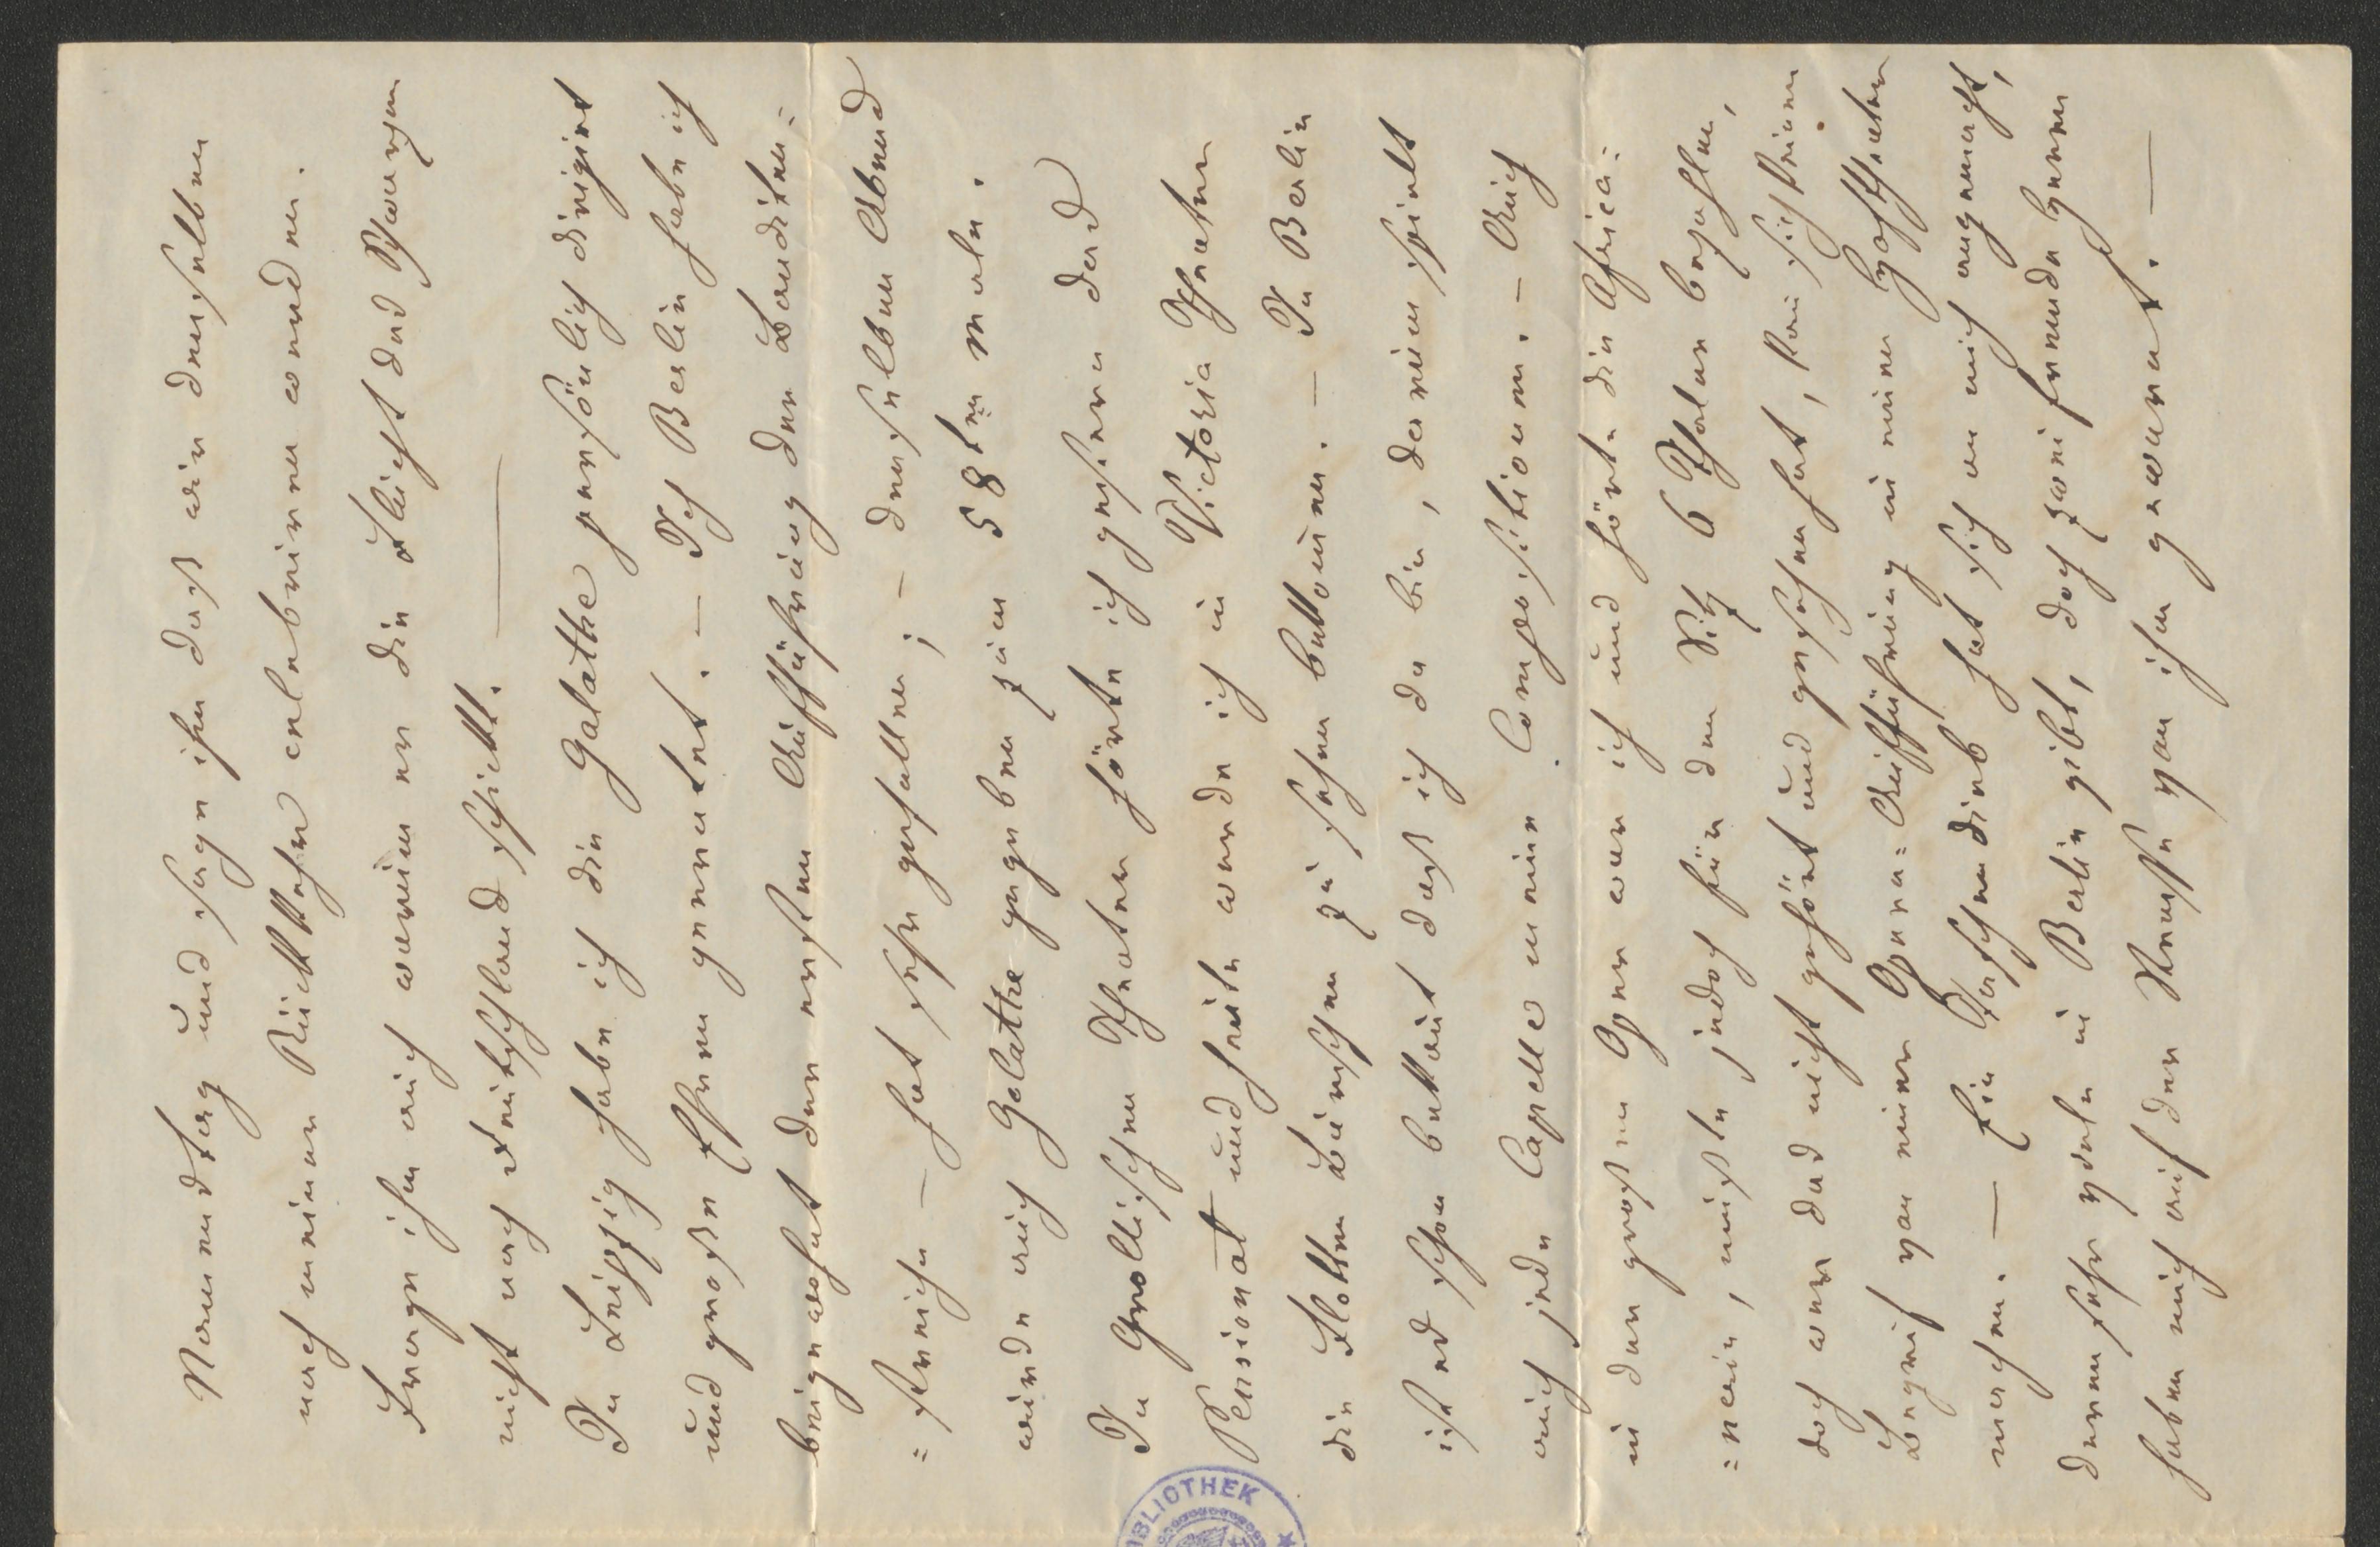 Nammestag und sage ihm dass wir denselben
nach meiner Rückkehr celebriren werden.
Frage ihn auch warum er die Flucht des Schwarzen
nicht nach Deutschland schickt.
In Leipzig habe ich die Galathe persönlich dirigirt
und große Ehren geerntet. — In Berlin habe ich
beigewohnt der ersten Aufführung der Banditen=
=streiche — hat sehr gefallen; — denselben Abend
wurde auch Galathe gegeben zum 58ten male.
In Grollischen Theater hörte ich gestern das
Pensionat und heute werde ich in Victoria Theater
die Flotten Burschen zu sehen bekommen. — In Berlin
ist es schon bekannt dass ich da bin, darum spielt
auch jede Capelle meine Compositionen. — Auch
in der großen Oper war ich und hörte die Africa=
=nerin, musste jedoch für den Sitz 6 Thaler bezahlen,
doch wer das nicht gehört und gesehen hat, kan sich keinen
Begrif von einer Opern=Aufführung in einem Hoftheater
machen. — Ein Taschendieb hat sich an mich angemacht,
deren sehr viele in Berlin gibt, doch zwei fremde Herren
haben mich auf der Strasse von ihm gewarnt. —
BIBLIOTHEK